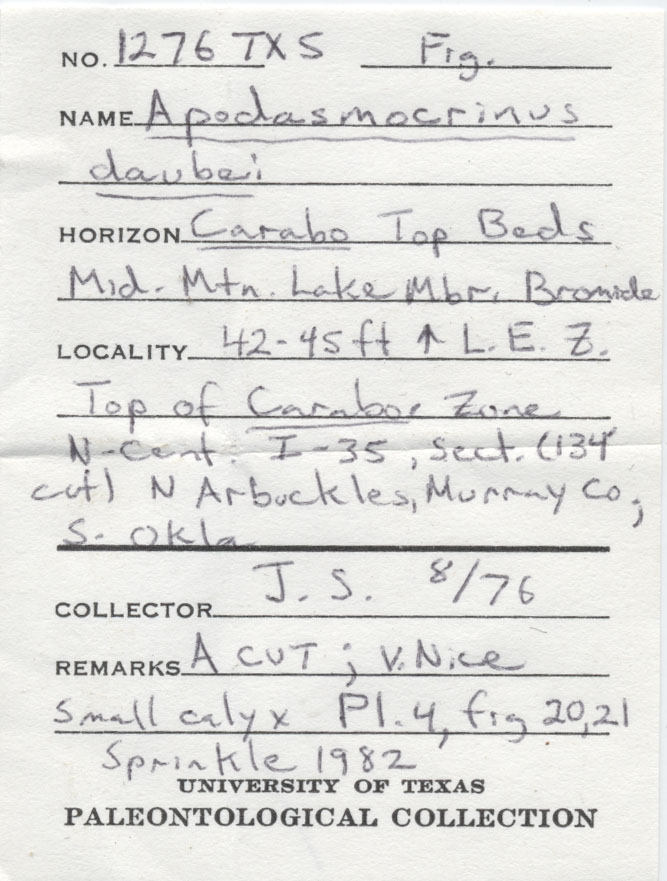 NO. 1276 TX S Fig.
NAME Apodasmocrinus
daubei
HORIZON Carabo Top Beds
Mid. Mtn. Lake Mbr. Bromide
LOCALITY 42-45 ft ↑ L. E. Z.
Top of Zone
N-cent. I-35, sect. (134'
cut) N Arbuckles, Murray Co;
S- Okla
COLLECTOR J. S. 8/76
REMARKS A CUT; V. Nice
Small calyx Pl. 4, fig 20,21
Sprinkle 1982
UNIVERSITY OF TEXAS
PALEONTOLOGICAL COLLECTION